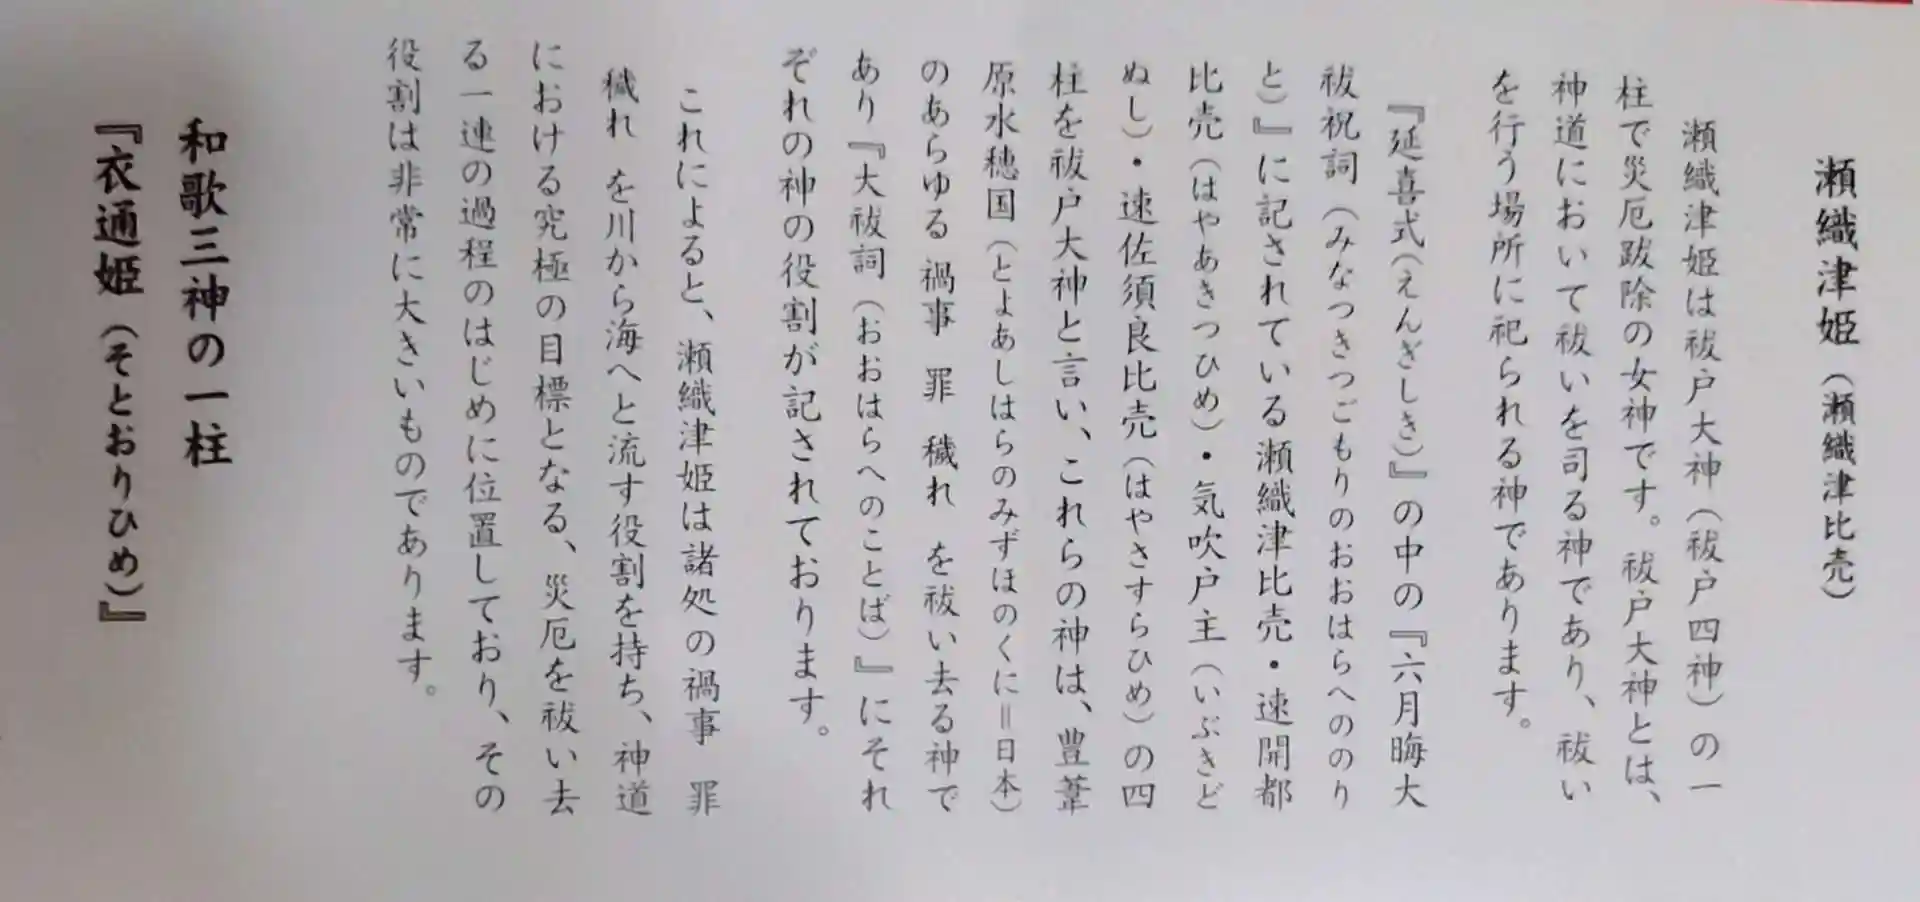 瀬織津姫（瀬織津比売）
瀬織津姫は祓戸大神（祓戸四神）の一
柱で災厄跋除の女神です。祓戸大神とは、
神道において祓いを司る神であり、祓い
を行う場所に祀られる神であります。
『延喜式（えんぎしき）』の中の『六月晦大
祓祝詞（みなつきつごもりのおおはらへののり
と）』に記されている瀬織津比売・速開都
比売（はやあきつひめ）・気吹戸主（いぶきど
ぬし）・速佐須良比売（はやさすらひめ）の四
柱を祓戸大神と言い、これらの神は、豊葦
原水穂国（とよあしはらのみずほのくに＝日本）
のあらゆる 禍事 罪 穢れ を祓い去る神で
あり『大祓詞（おおはらへのことば）』にそれ
ぞれの神の役割が記されております。
これによると、瀬織津姫は諸処の禍事 罪
穢れ を川から海へと流す役割を持ち、神道
における究極の目標となる、災厄を祓い去
る一連の過程のはじめに位置しており、その
役割は非常に大きいものであります。
和歌三神の一柱
『衣通姫（そとおりひめ）』